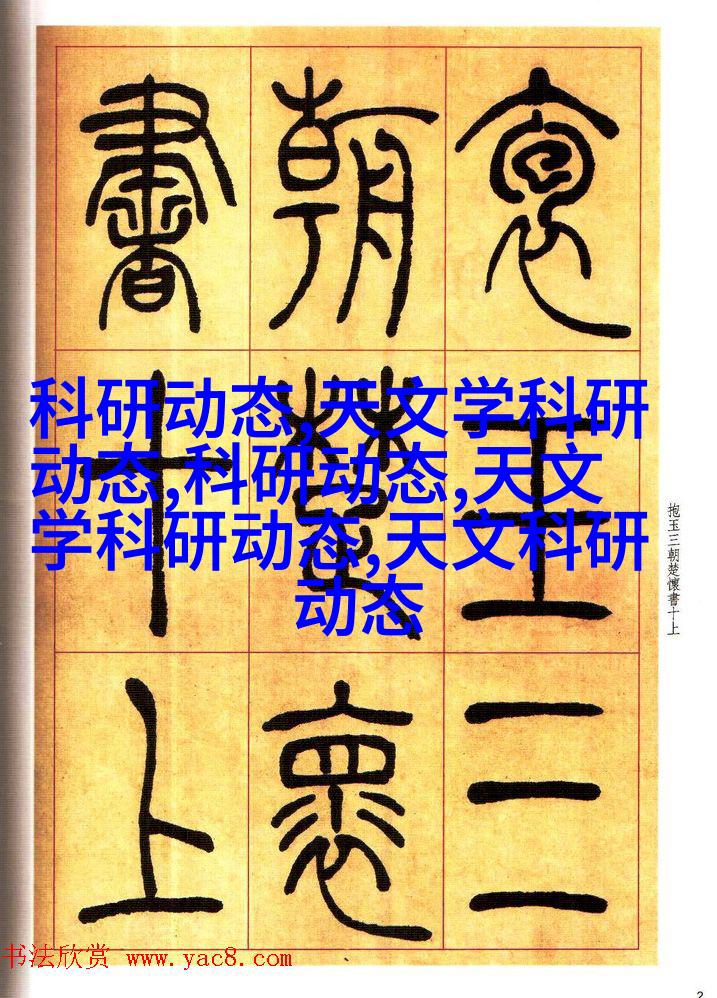 抱玉三
朝楚懷
書十上
科研动态,天文学科研
动态,科研动态,天文
学科研动态,天文科研
动态
抱玉三朝楚懷書十上
书法欣赏 www.yac8.com
2